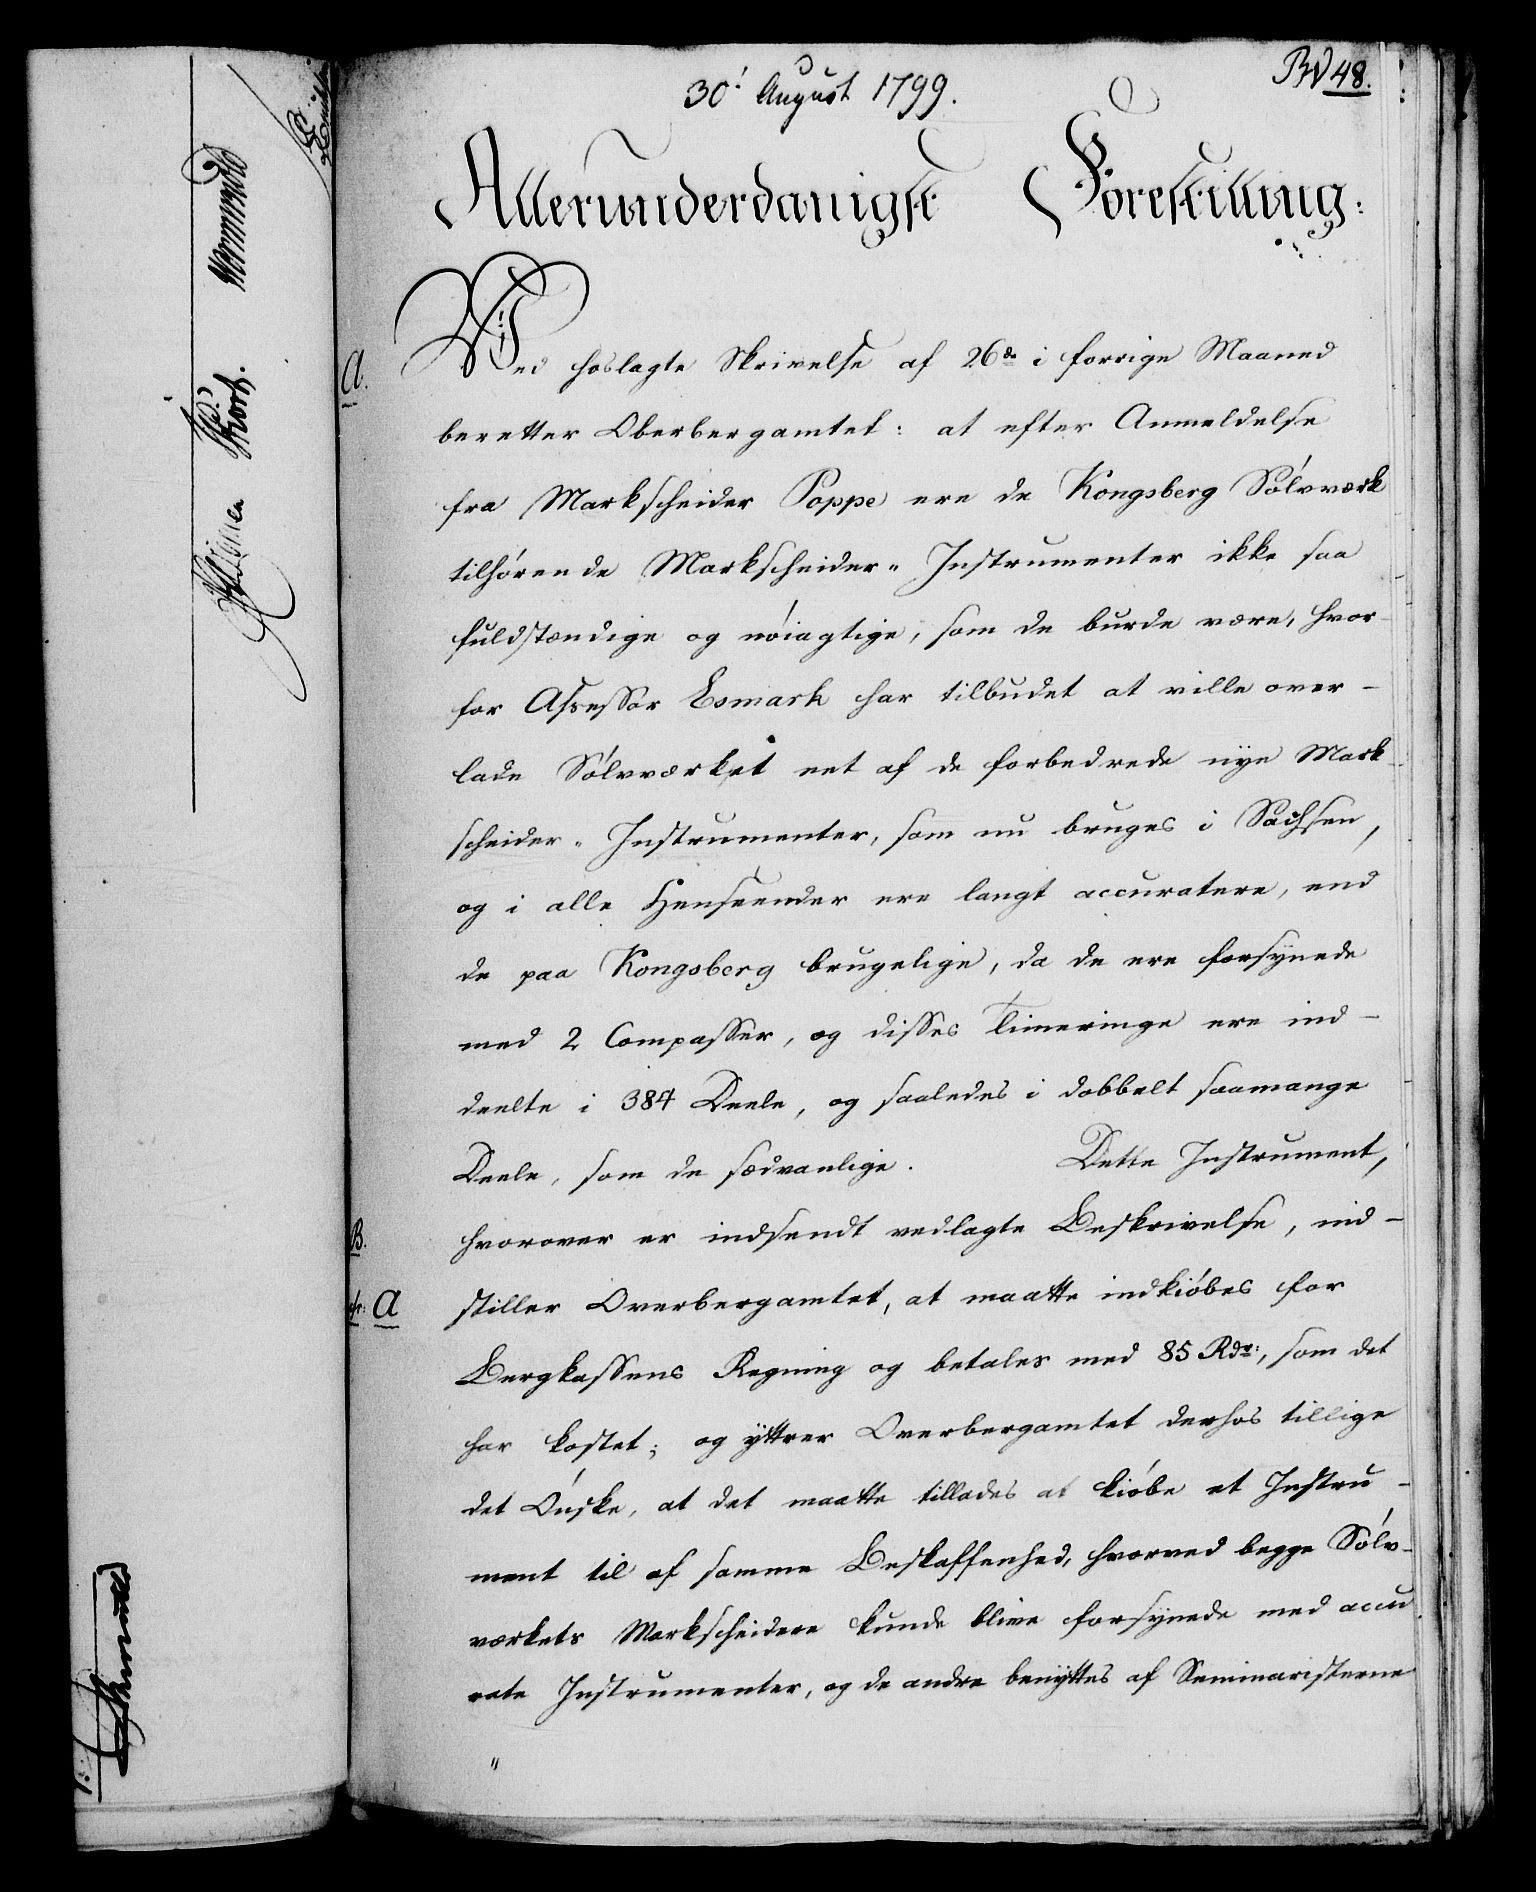 30' August 1799.
48.
Allerunderdanigst Forestilling:
A.
Ved hoslagte Skrivelse af 26de i forrige Maaned
beretter Oberbergamtet: at efter Anmeldelse
fra Markscheider Poppe ere de Kongsberg Sølvværk
tilhørende Markscheider-Instrumenter ikke saa
fuldstændige og nøiagtige, som de burde være, hvor-
for Assessor Esmark har tilbudet at ville over-
lade Sølvværket eet af de forbedrede nye Mark-
scheider-Instrumenter, som nu bruges i Sachsen,
og i alle Henseender ere langt accuratere, end
de paa Kongsberg brugelige, da de ere forsynede
med 2 Compasser, og disses Timeringe ere ind-
deelte i 384 Deele, og saaledes i dobbelt saamange
Deele, som de sædvanlige. Dette Instrument,
B.
hvorover er indsendt vedlagte Beskrivelse, ind-
A
stiller Overbergamtet, at maatte indkiøbes for
Bergkassens Regning og betales med 85 Rdr:, som det
har kostet; og yttrer Overbergamtet derhos tillige
det Ønske, at det maatte tillades at kiøbe et Instru-
ment til af samme Beskaffenhed, hvorved begge Sølv-
værkets Markscheidere kunde blive forsynede med accu
rate Instrumenter, og de andre benyttes af Seminaristerne
"